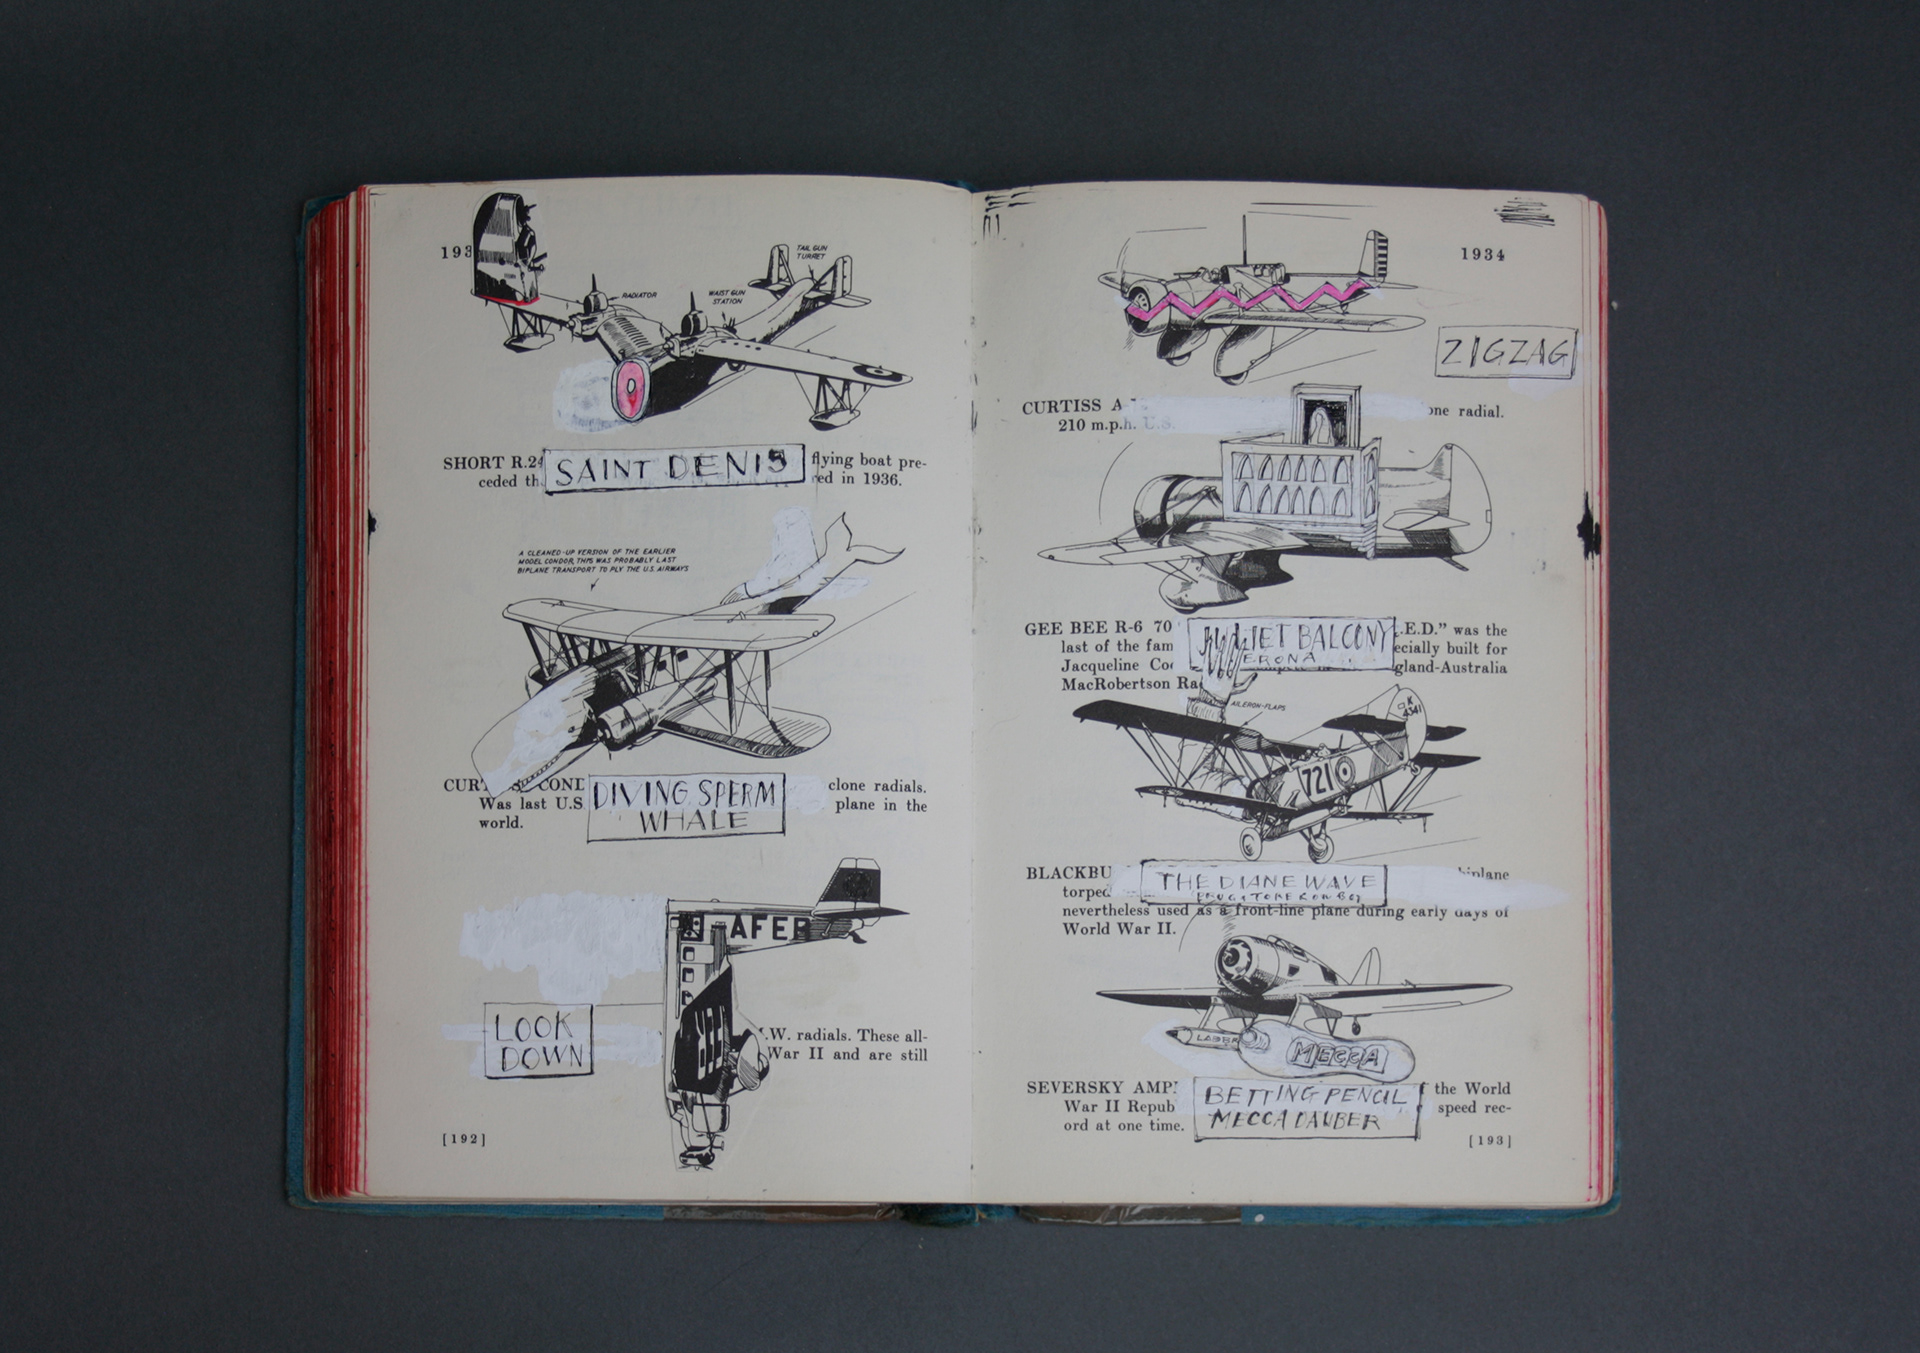 193
TAIL GUN
TURRET
RADIATOR
WAIST GUN
STATION
SHORT R.24
SAINT DENIS
flying boat pre-
ceded th
red in 1936.
A CLEANED-UP VERSION OF THE EARLIER
MODEL CONDOR, THIS WAS PROBABLY LAST
BIPLANE TRANSPORT TO PLY THE U.S. AIRWAYS
CONE
DIVING SPERM
WHALE
clone radials.
Was last U.S
plane in the
world.
AFER
LOOK
DOWN
.W. radials. These all-
War II and are still
[192]
1934
ZIGZAG
CURTISS A
one radial.
210 m.p.h. U.S.
GEE BEE R-6 70
BALCONY
.E.D." was the
last of the fam
ERONA
ecially built for
Jacqueline Coc
gland-Australia
MacRobertson Ra
AILERON-FLAPS
K
4341
721
BLACKBU
THE DIANE WAVE
biplane
torped
nevertheless used as a front-line plane during early days of
World War II.
LABER
MECCA
SEVERSKY AMP
BETTING PENCIL
MECCA DAUBER
f the World
War II Repub
speed rec-
ord at one time.
[193]